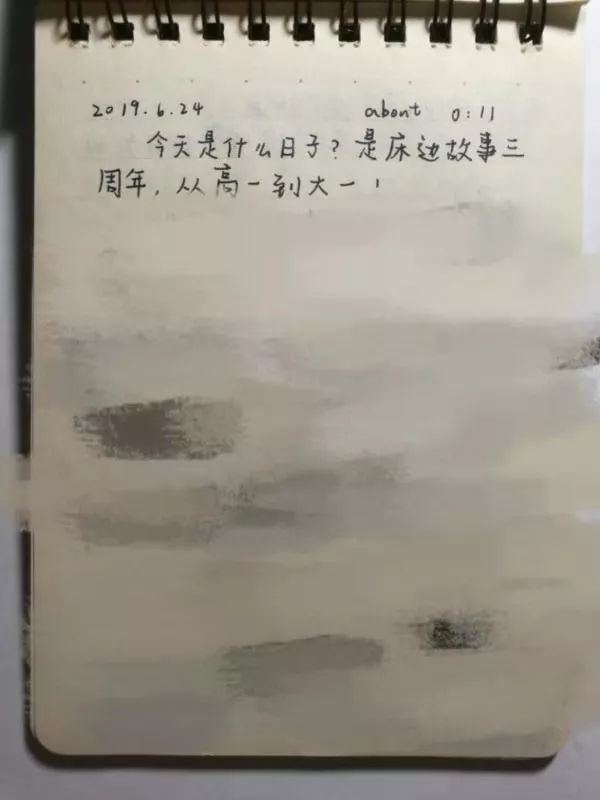 2019.6.24 about 0:11
今天是什么日子？是床边故事三
周年，从高一到大一